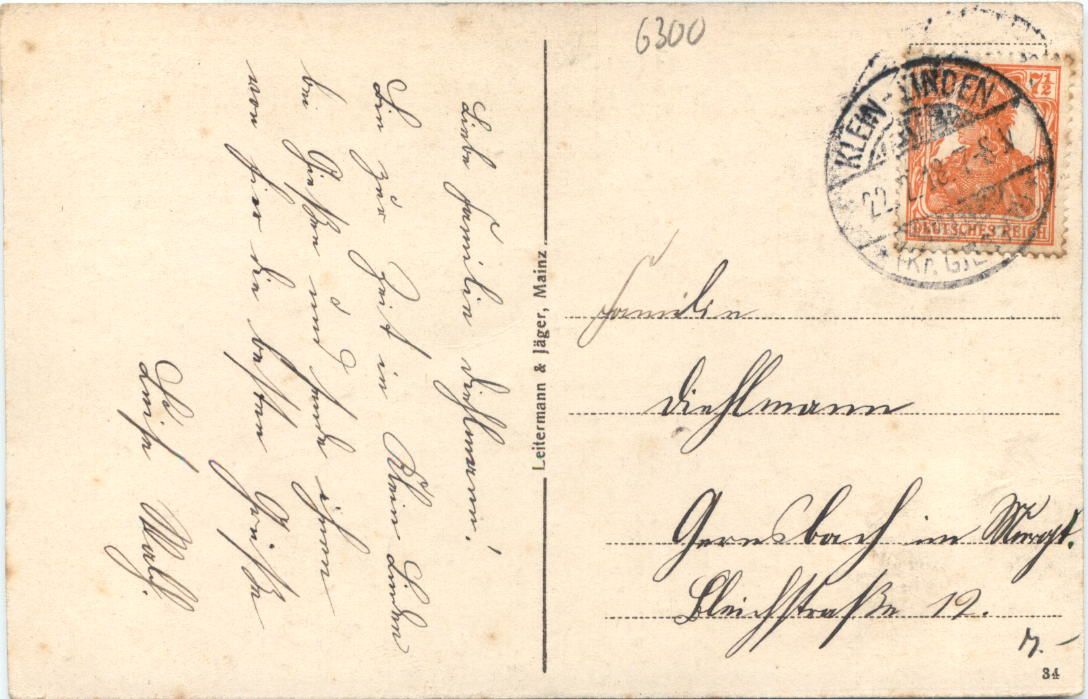 6300
KLEIN-LINDEN
22. 2. 18. 7-8 V.
(Kr. GIE
7½
DEUTSCHES REICH
Liebe Familie Diehlmann!
Bin zur Zeit in Klein Linden
bei Gießen und sende ihnen
von hier die besten Grüße
Luise Wolf.
Leitermann & Jäger, Mainz
Familie
Diehlmann
Gernsbach im Murgt.
Bleichstraße 19.
34